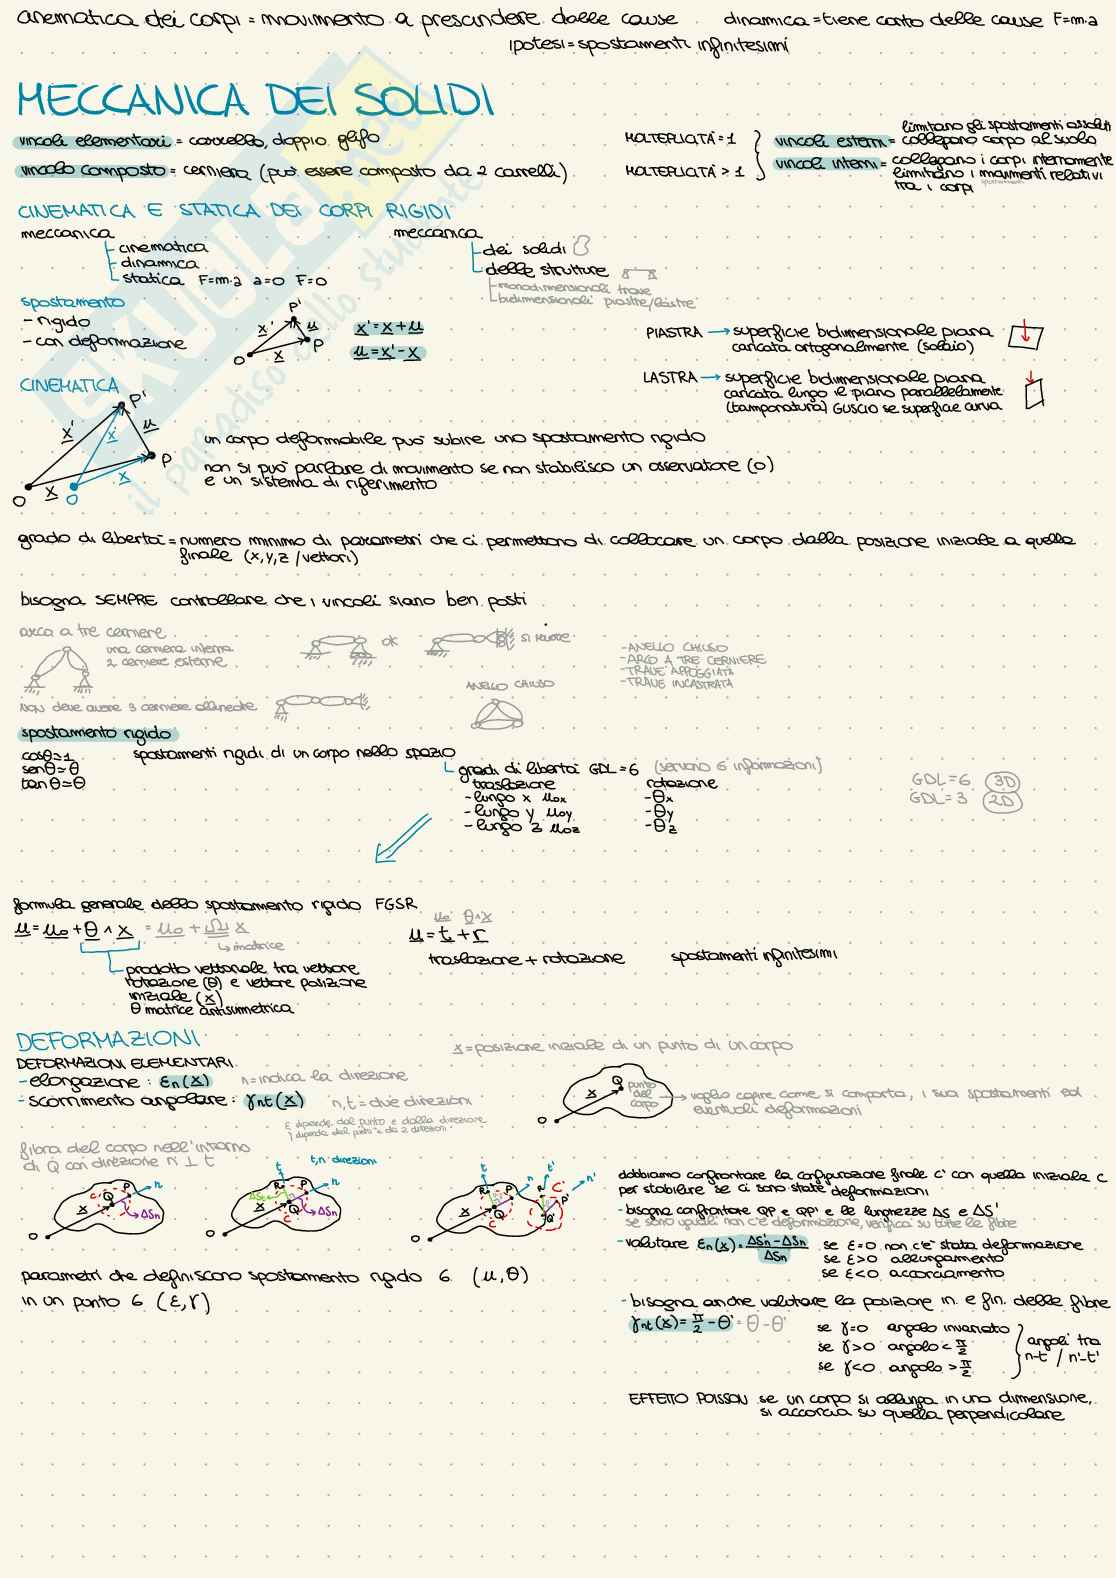 cinematica dei corpi = movimento a prescindere dalle cause dinamica = tiene conto delle cause F=m·a
ipotesi = spostamenti infinitesimi
MECCANICA DEI SOLIDI
vincoli elementari = carrello, doppio glifo MOLTEPLICITÀ = 1
vincolo composto = cerniera (può essere composto da 2 carrelli) MOLTEPLICITÀ > 1
vincoli esterni = limitano gli spostamenti assoluti
collegano corpo al suolo
vincoli interni = collegano i corpi internamente
limitano i movimenti relativi
tra i corpi
CINEMATICA E STATICA DEI CORPI RIGIDI
meccanica
cinematica
dinamica
statica F=m·a a=0 F=0
meccanica
dei solidi
delle strutture
monodimensionali trave
bidimensionali piastre/lastre
spostamento
- rigido
- con deformazione
P'
x' u
x P
O
x' = x + u
u = x' - x
PIASTRA → superficie bidimensionale piana
caricata ortogonalmente (solaio)
LASTRA → superficie bidimensionale piana
caricata lungo il piano parallelamente
(tamponatura) GUSCIO se superficie curva
CINEMATICA
P'
x' x' u
P
x x
O O
un corpo deformabile può subire uno spostamento rigido
non si può parlare di movimento se non stabilisco un osservatore (O)
e un sistema di riferimento
grado di libertà = numero minimo di parametri che ci permettono di collocare un corpo dalla posizione iniziale a quella
finale (x,y,z / vettori)
bisogna SEMPRE controllare che i vincoli siano ben posti
arco a tre cerniere
una cerniera interna
2 cerniere esterne
ok
si muove
- ANELLO CHIUSO
- ARCO A TRE CERNIERE
- TRAVE APPOGGIATA
- TRAVE INCASTRATA
NON deve avere 3 cerniere allineate
ANELLO CHIUSO
spostamento rigido
cosθ≃1
senθ≃θ
tanθ≃θ
spostamenti rigidi di un corpo nello spazio
gradi di libertà GDL = 6 (servono 6 informazioni)
traslazione rotazione
- lungo x uox - θx
- lungo y uoy - θy
- lungo z uoz - θz
GDL = 6 3D
GDL = 3 2D
formula generale dello spostamento rigido FGSR
u = uo + θ ∧ x = uo + Ω x
matrice
prodotto vettoriale tra vettore
rotazione (θ) e vettore posizione
iniziale (x)
θ matrice antisimmetrica
uo θ∧x
u = t + r
traslazione + rotazione spostamenti infinitesimi
DEFORMAZIONI
DEFORMAZIONI ELEMENTARI
- elongazione : εn(x) n = indica la direzione
- scorrimento angolare : γnt(x) n,t = due direzioni
ε dipende dal punto e dalla direzione
γ dipende dal punto e da 2 direzioni
x = posizione iniziale di un punto di un corpo
Q punto
del
corpo
x
O
voglio capire come si comporta, i suoi spostamenti ed
eventuali deformazioni
fibra del corpo nell'intorno
di Q con direzione n ⊥ t
t,n direzioni
C P n
Q
x ΔSn
O
t
R P n
ΔSt
Q
x ΔSn
C
O
t t'
R P n R' C' P' n'
x Q Q'
C
O
dobbiamo confrontare la configurazione finale C' con quella iniziale C
per stabilire se ci sono state deformazioni
- bisogna confrontare QP e QP' e le lunghezze ΔS e ΔS'
se sono uguali non c'è deformazione, verifica su tutte le fibre
- valutare εn(x) = ΔS'n - ΔSn / ΔSn se ε=0 non c'è stata deformazione
se ε>0 allungamento
se ε<0 accorciamento
- bisogna anche valutare la posizione in. e fin. delle fibre
γnt(x) = π/2 - θ' = θ - θ'
se γ=0 angolo invariato
se γ>0 angolo < π/2
se γ<0 angolo > π/2
angoli tra
n-t / n'-t'
parametri che definiscono spostamento rigido 6 (u,θ)
in un punto 6 (ε,γ)
EFFETTO POISSON se un corpo si allunga in una dimensione,
si accorcia su quella perpendicolare
il paradiso dello studente